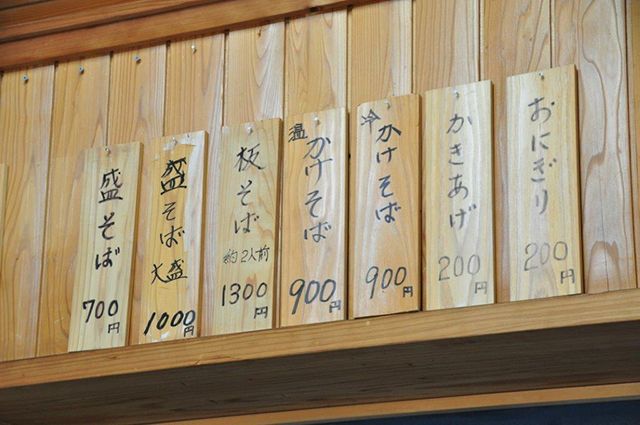 おにぎり
200円
かきあげ
200円
冷
かけそば
900円
温
かけそば
900円
板そば
約2人前
1300円
盛そば
大盛
1000円
盛そば
700円